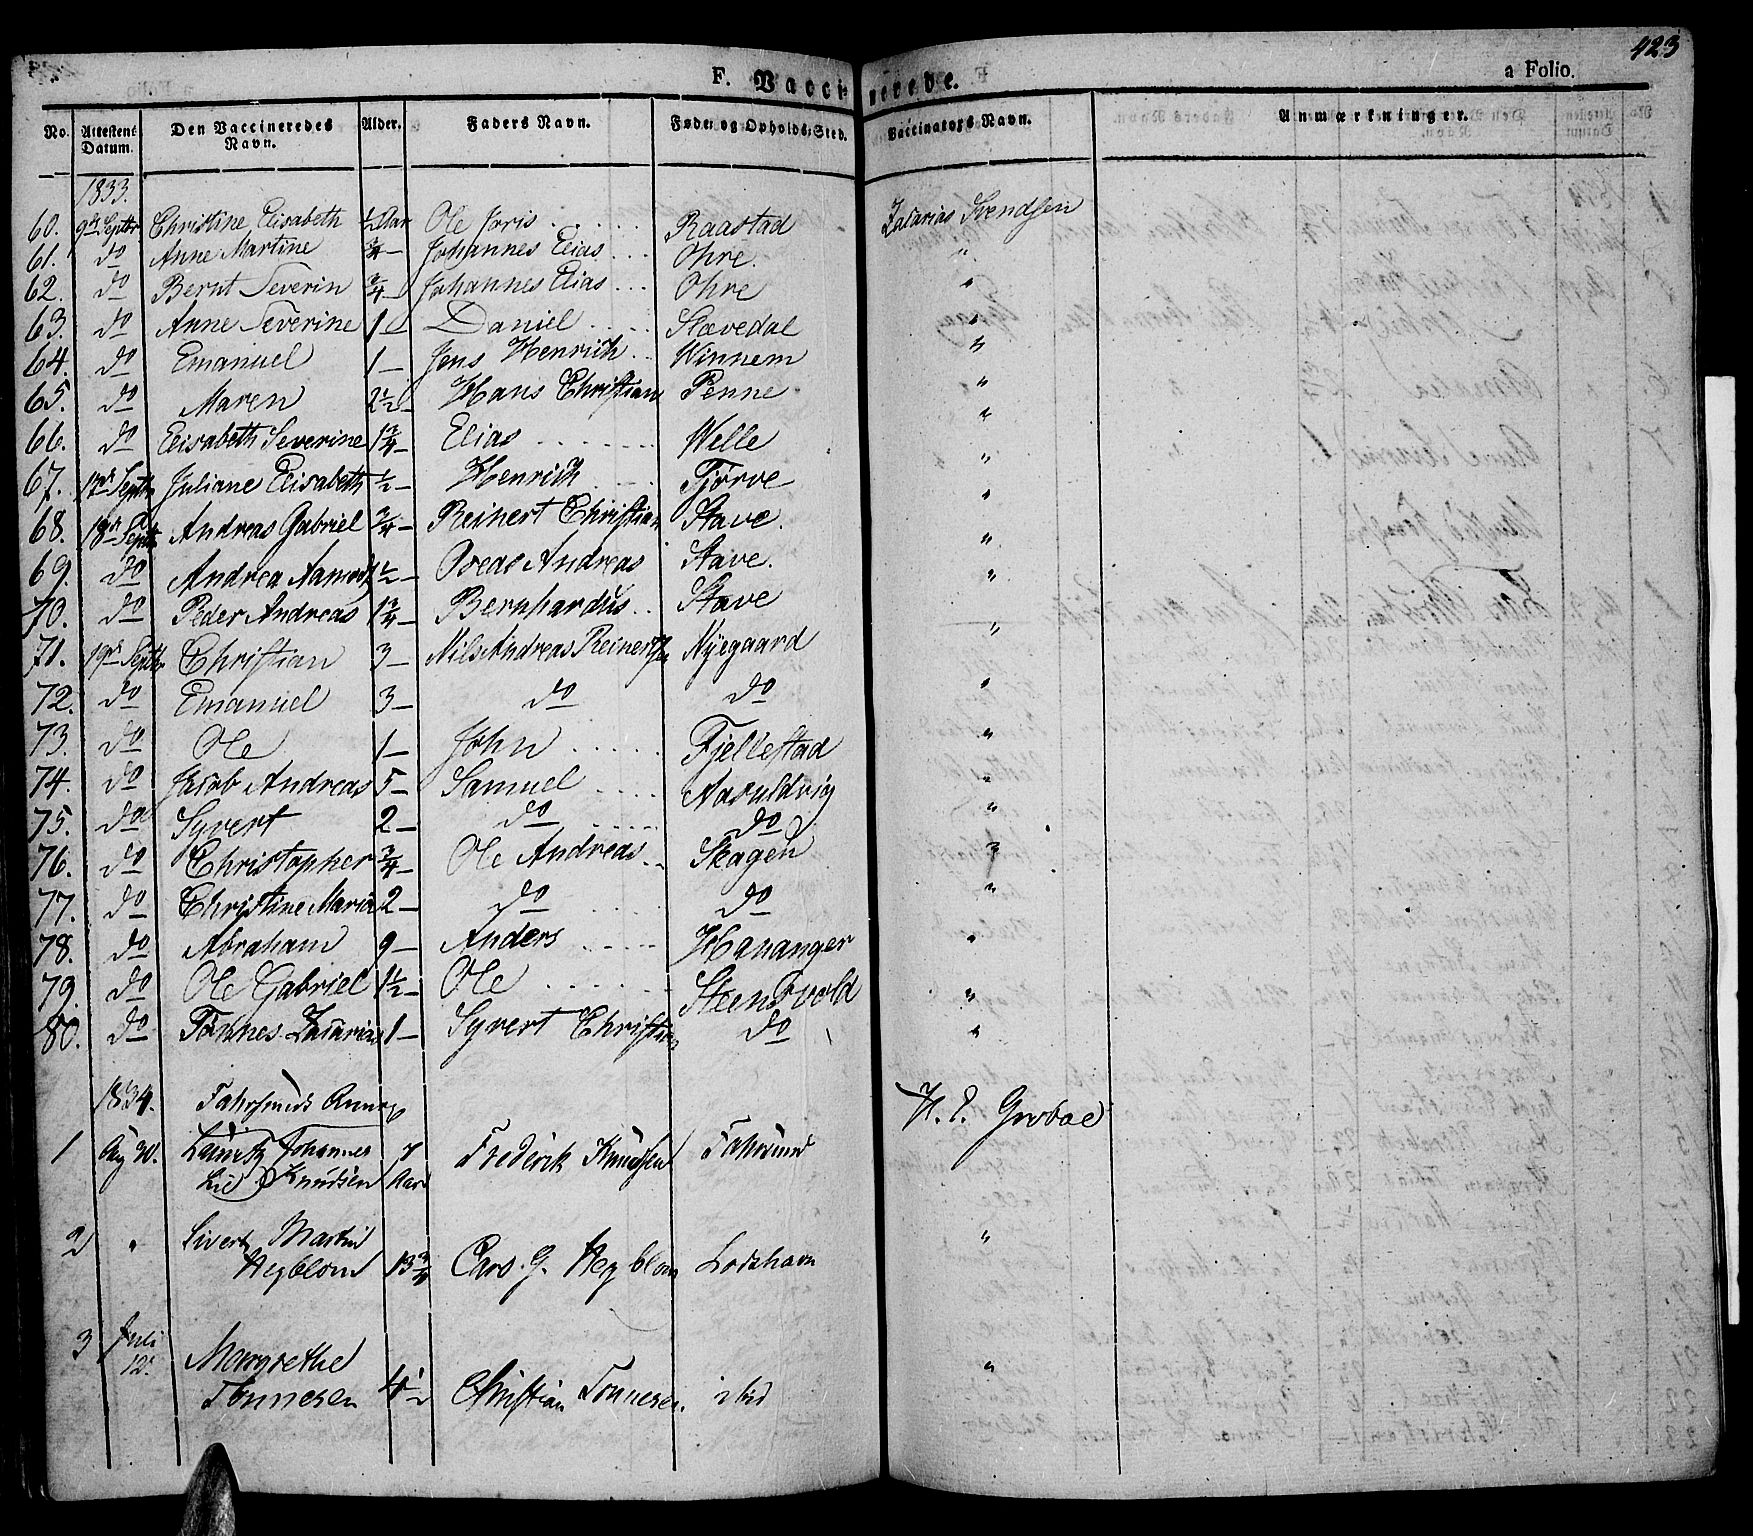 423
F. Vaccinerede.
a Folio.
No. Attestens Datum. Den Vaccineredes Navn. Alder. Faders Navn. Føde- og Opholds-Sted. Vaccinators Navn. Anmærkninger.
1833.
60. 9de Septbr. Christine Elisabeth ½ Aar Ole Joris Raastad Zacarias Svendsen
61. do Anne Martine ¾ — Johannes Elias Ohre. "
62. do Bernt Severin ¾ — Johannes Elias Ohre "
63. do Anne Severine 1 — Daniel Stævedal "
64. do Emanuel 1 — Jens Henrich Winnem "
65. do Maren 2½ — Hans Christian Penne "
66. do Elisabeth Severine 1¾ — Elias Welle "
67. 17de Septbr Juliane Elisabeth ½ — Henrich Tjørve "
68. 18de Septbr Andreas Gabriel ¾ — Reinert Christian Stave. "
69. do Andrea 1½ — Oseas Andreas Stave. "
70. do Peder Andreas 1¾ — Bernhardus Stave "
71. 19de Septbr Christian 3 — Nils Andreas Reinertsen Nyegaard "
72. do Emanuel 3 — do do "
73. do Ole 1 — John Fjellestad "
74. do Jacob Andreas 5 — Samuel Aasuldvig "
75. do Syvert 2 — do do "
76. do Christopher ¾ — Ole Andreas Skagen "
77. do Christine Maria 2 — do do "
78. do Abraham 9 — Anders Hananger "
79. do Ole Gabriel 1½ — Ole Steensvold "
80. do Tønnes Zacarias 1 — Syvert Christian do "
1834. Fahrsunds Annex
H. E. Groboe
1 Aug 30. Lauritz Johannes 7 Frederik Knudsen Fahrsund
Lie Knudsen Aar
2 " Sivert Martin
Hegblom 13¾ Cars. G. Hegblom Loshavn "
3 Juli
12. Margrethe "
Tonnesen 4½ Christian Tonnesen ibid